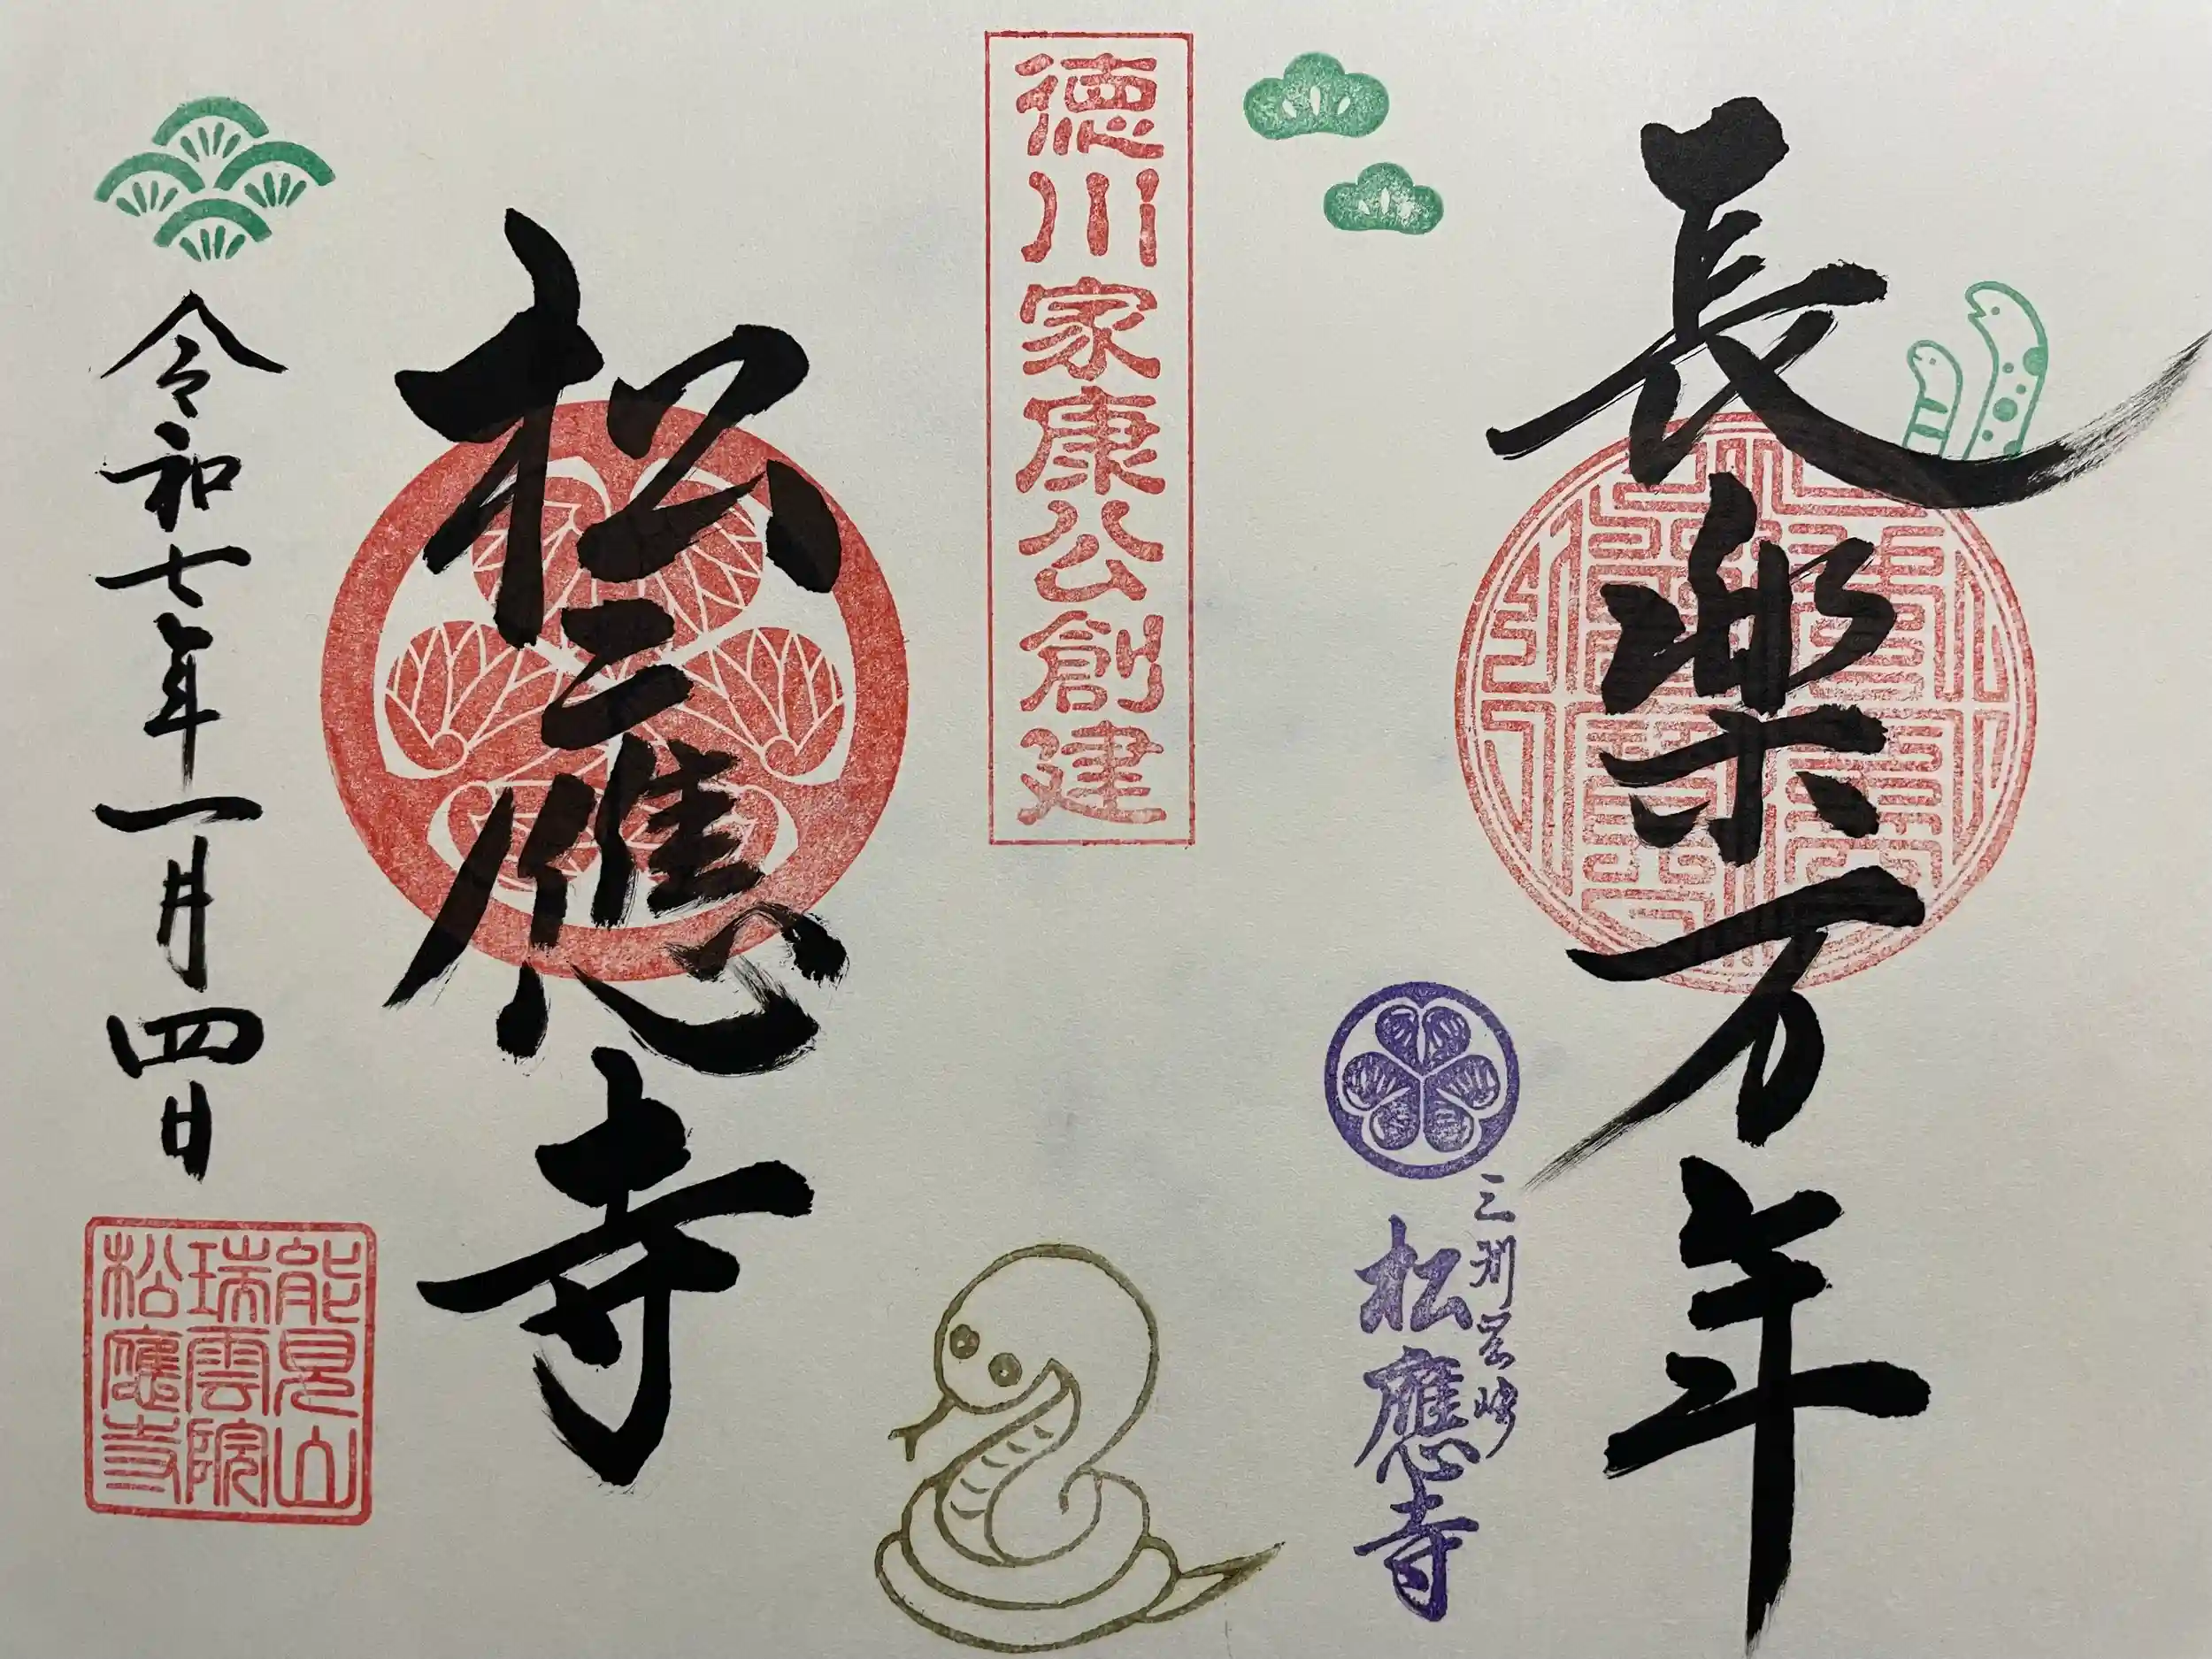 長樂万年
三州岡崎
松應寺
徳川家康公創建
松應寺
令和七年一月四日
能見山
瑞雲院
松應寺